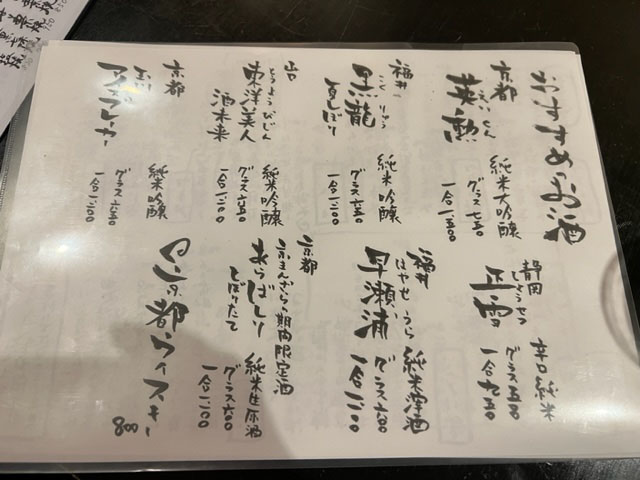 おすすめのお酒
京都
えいくん
英勲
純米大吟醸
グラス七五〇
一合一五〇〇
福井
こくりゅう
黒龍
夏しぼり
純米吟醸
グラス六五〇
一合一二〇〇
山口
とうようびじん
東洋美人
酒未来
純米吟醸
グラス六五〇
一合一二〇〇
京都
玉川
アイスブレーカー
純米吟醸
グラス六五〇
一合一二〇〇
静岡
しょうせつ
正雪
辛口純米
グラス五〇〇
一合九五〇
福井
はやせうら
早瀬浦
純米澤酒
グラス六〇〇
一合一一〇〇
京都
京まんざら期間限定酒
あらばしり
しぼりたて
純米生原酒
グラス六〇〇
一合一一〇〇
京都ウイスキー
800